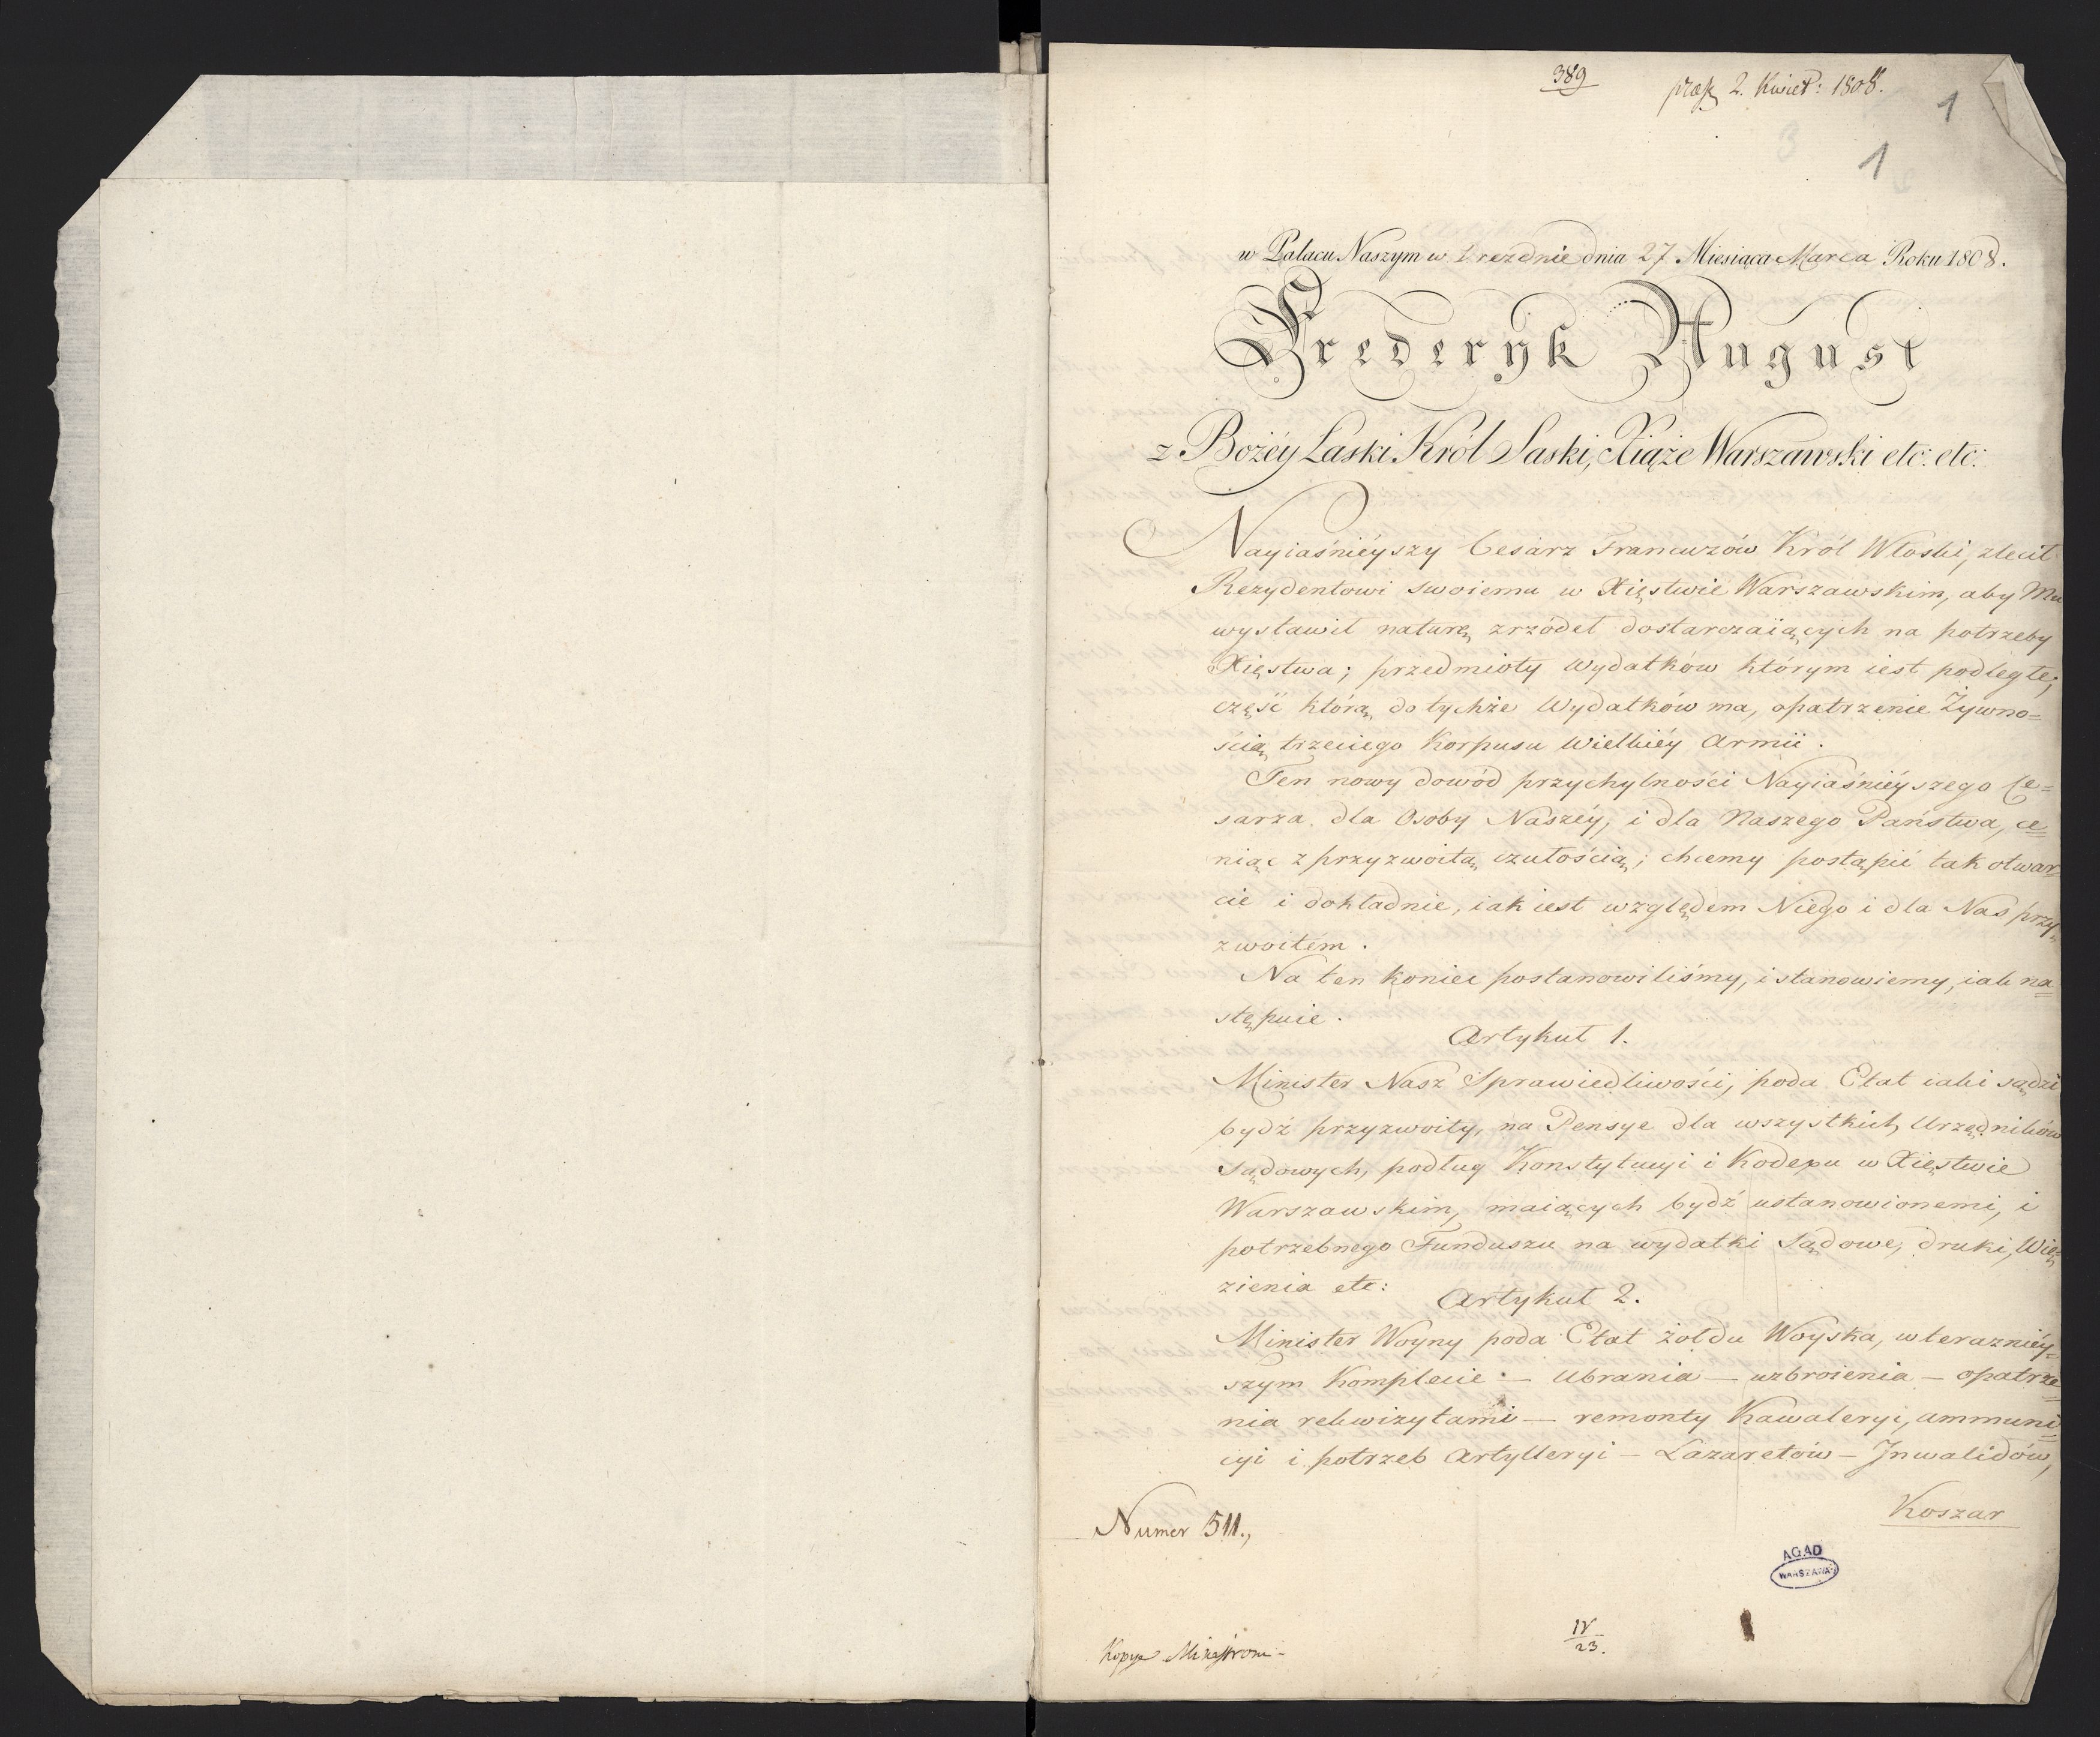 389
2. Kwiet: 1808.
1
3
1
w Pałacu Naszym w Dreznie dnia 27 Miesiąca Marca Roku 1808.
Frederyk August
z Bożey Łaski Król Saski, Xiąże Warszawski etc: etc:
Nayiaśnieyszy Cesarz Francuzów Król Włoski, zlecił
Rezydentowi swoiemu w Xięstwie Warszawskim, aby Mu
wystawił naturę zrzódeł dostarczaiących na potrzeby
Xięstwa; przedmioty Wydatków którym iest podległe;
część którą do tychże Wydatków ma, opatrzenie Żywno=
ścią trzeciego Korpusu Wielkiéy Armii.
Ten nowy dowód przychylności Nayiaśniéyszego Ce=
sarza dla Osoby Naszéy, i dla Naszego Państwa, ce=
niąc z przyzwoitą czułością; chcemy postąpić tak otwar=
cie i dokładnie, iak iest względem Niego i dla Nas przy=
zwoitém.
Na ten koniec postanowiliśmy, i stanowiemy, iak na=
stępuie.
Artykuł 1.
Minister Nasz Sprawiedliwości, poda Etat iaki sądzi
bydź przyzwoity, na Pensye dla wszystkich Urzędników
Sądowych, podług Konstytucyi i Kodexu w Xięstwie
Warszawskim, maiących bydź ustanowionemi, i
potrzebnego Funduszu na wydatki Sądowe, druki, Wię=
zienia etc:
Artykuł 2.
Minister Woyny poda Etat żołdu Woyska, w teraznièy=
szym Komplecie — Ubrania — uzbroienia — opatrze=
nia rekwizytami — remonty Kawaleryi, ammuni=
cyi i potrzeb Artylleryi — Lazaretów — Inwalidów,
Koszar
Numer 511.,
AGAD
WARSZAWA
IV
23.
Kopye Ministrom